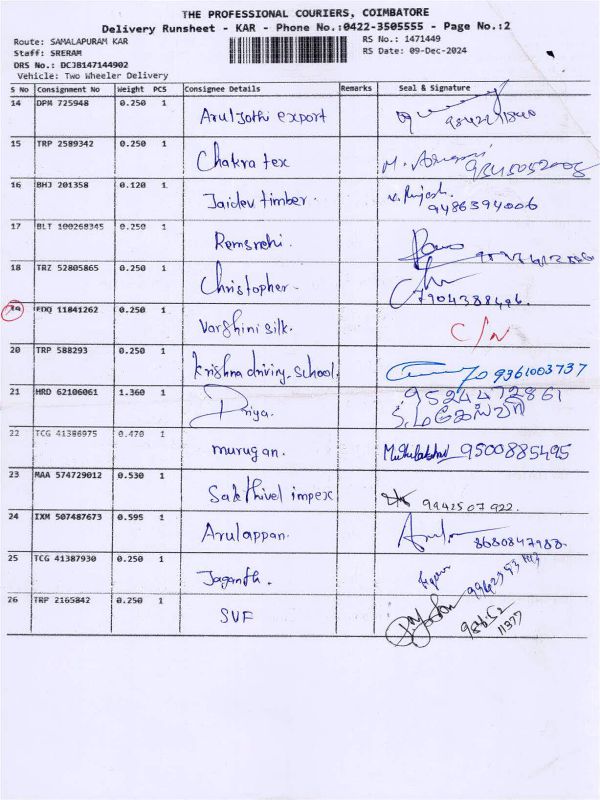 THE PROFESSIONAL COURIERS, COIMBATORE
Delivery Runsheet - KAR - Phone No.:0422-3505555 - Page No.:2
Route: SAMALAPURAM KAR
RS No.: 1471449
Staff: SRERAM
RS Date: 09-Dec-2024
DRS No.: DCJB147144902
Vehicle: Two Wheeler Delivery
S No Consignment No Weight PCS Consignee Details Remarks Seal & Signature
14 DPM 725948 0.250 1 Aruljothi export
15 TRP 2589342 0.250 1 Chakra tex
16 BHJ 201358 0.120 1 Jaidev timber. 9486394006
17 BLT 100268345 0.250 1
18 TRZ 52805865 0.250 1 Christopher. 7904388496.
19 EDQ 11841262 0.250 1 Varshini silk. C/N
20 TRP 588293 0.250 1 Krishna driving school. 9361003737
21 HRD 62106061 1.360 1 Priya. 9524472861
22 TCG 41386975 0.470 1 murugan. Muthulakshmi 9500885495
23 MAA 574729012 0.530 1 Sakthivel impex 9942507922.
24 IXM 507487673 0.595 1 Arulappan. 8680847988.
25 TCG 41387930 0.250 1 Jaganth.
26 TRP 2165842 0.250 1 SVF